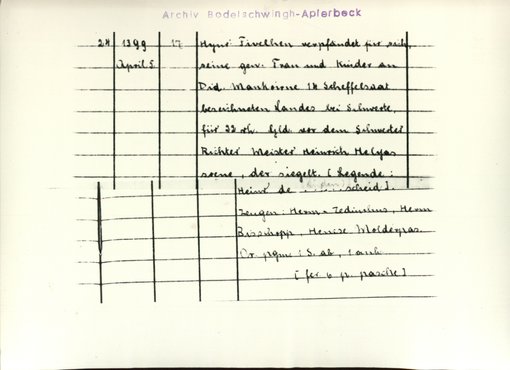 Archiv Bodelschwingh-Aplerbeck
24 1399 17 Hynr Tivelhen verpfändet für sich,
April 5 seine gen. Frau und Kinder an
Did. Mankorne 14 Scheffelsaat
bezeichneten Landes bei Schwerte,
für 22 rh. Gld. vor dem Schwerter
Richter Meister Heinrich Helyas
soene, der siegelt. (Legende:
Heinr de ..... scheid).
Zeugen: Herm.
Bisschopp, Henise Molderpas.
Or. pgm. S. ab,
[fer 6 p. pasche]